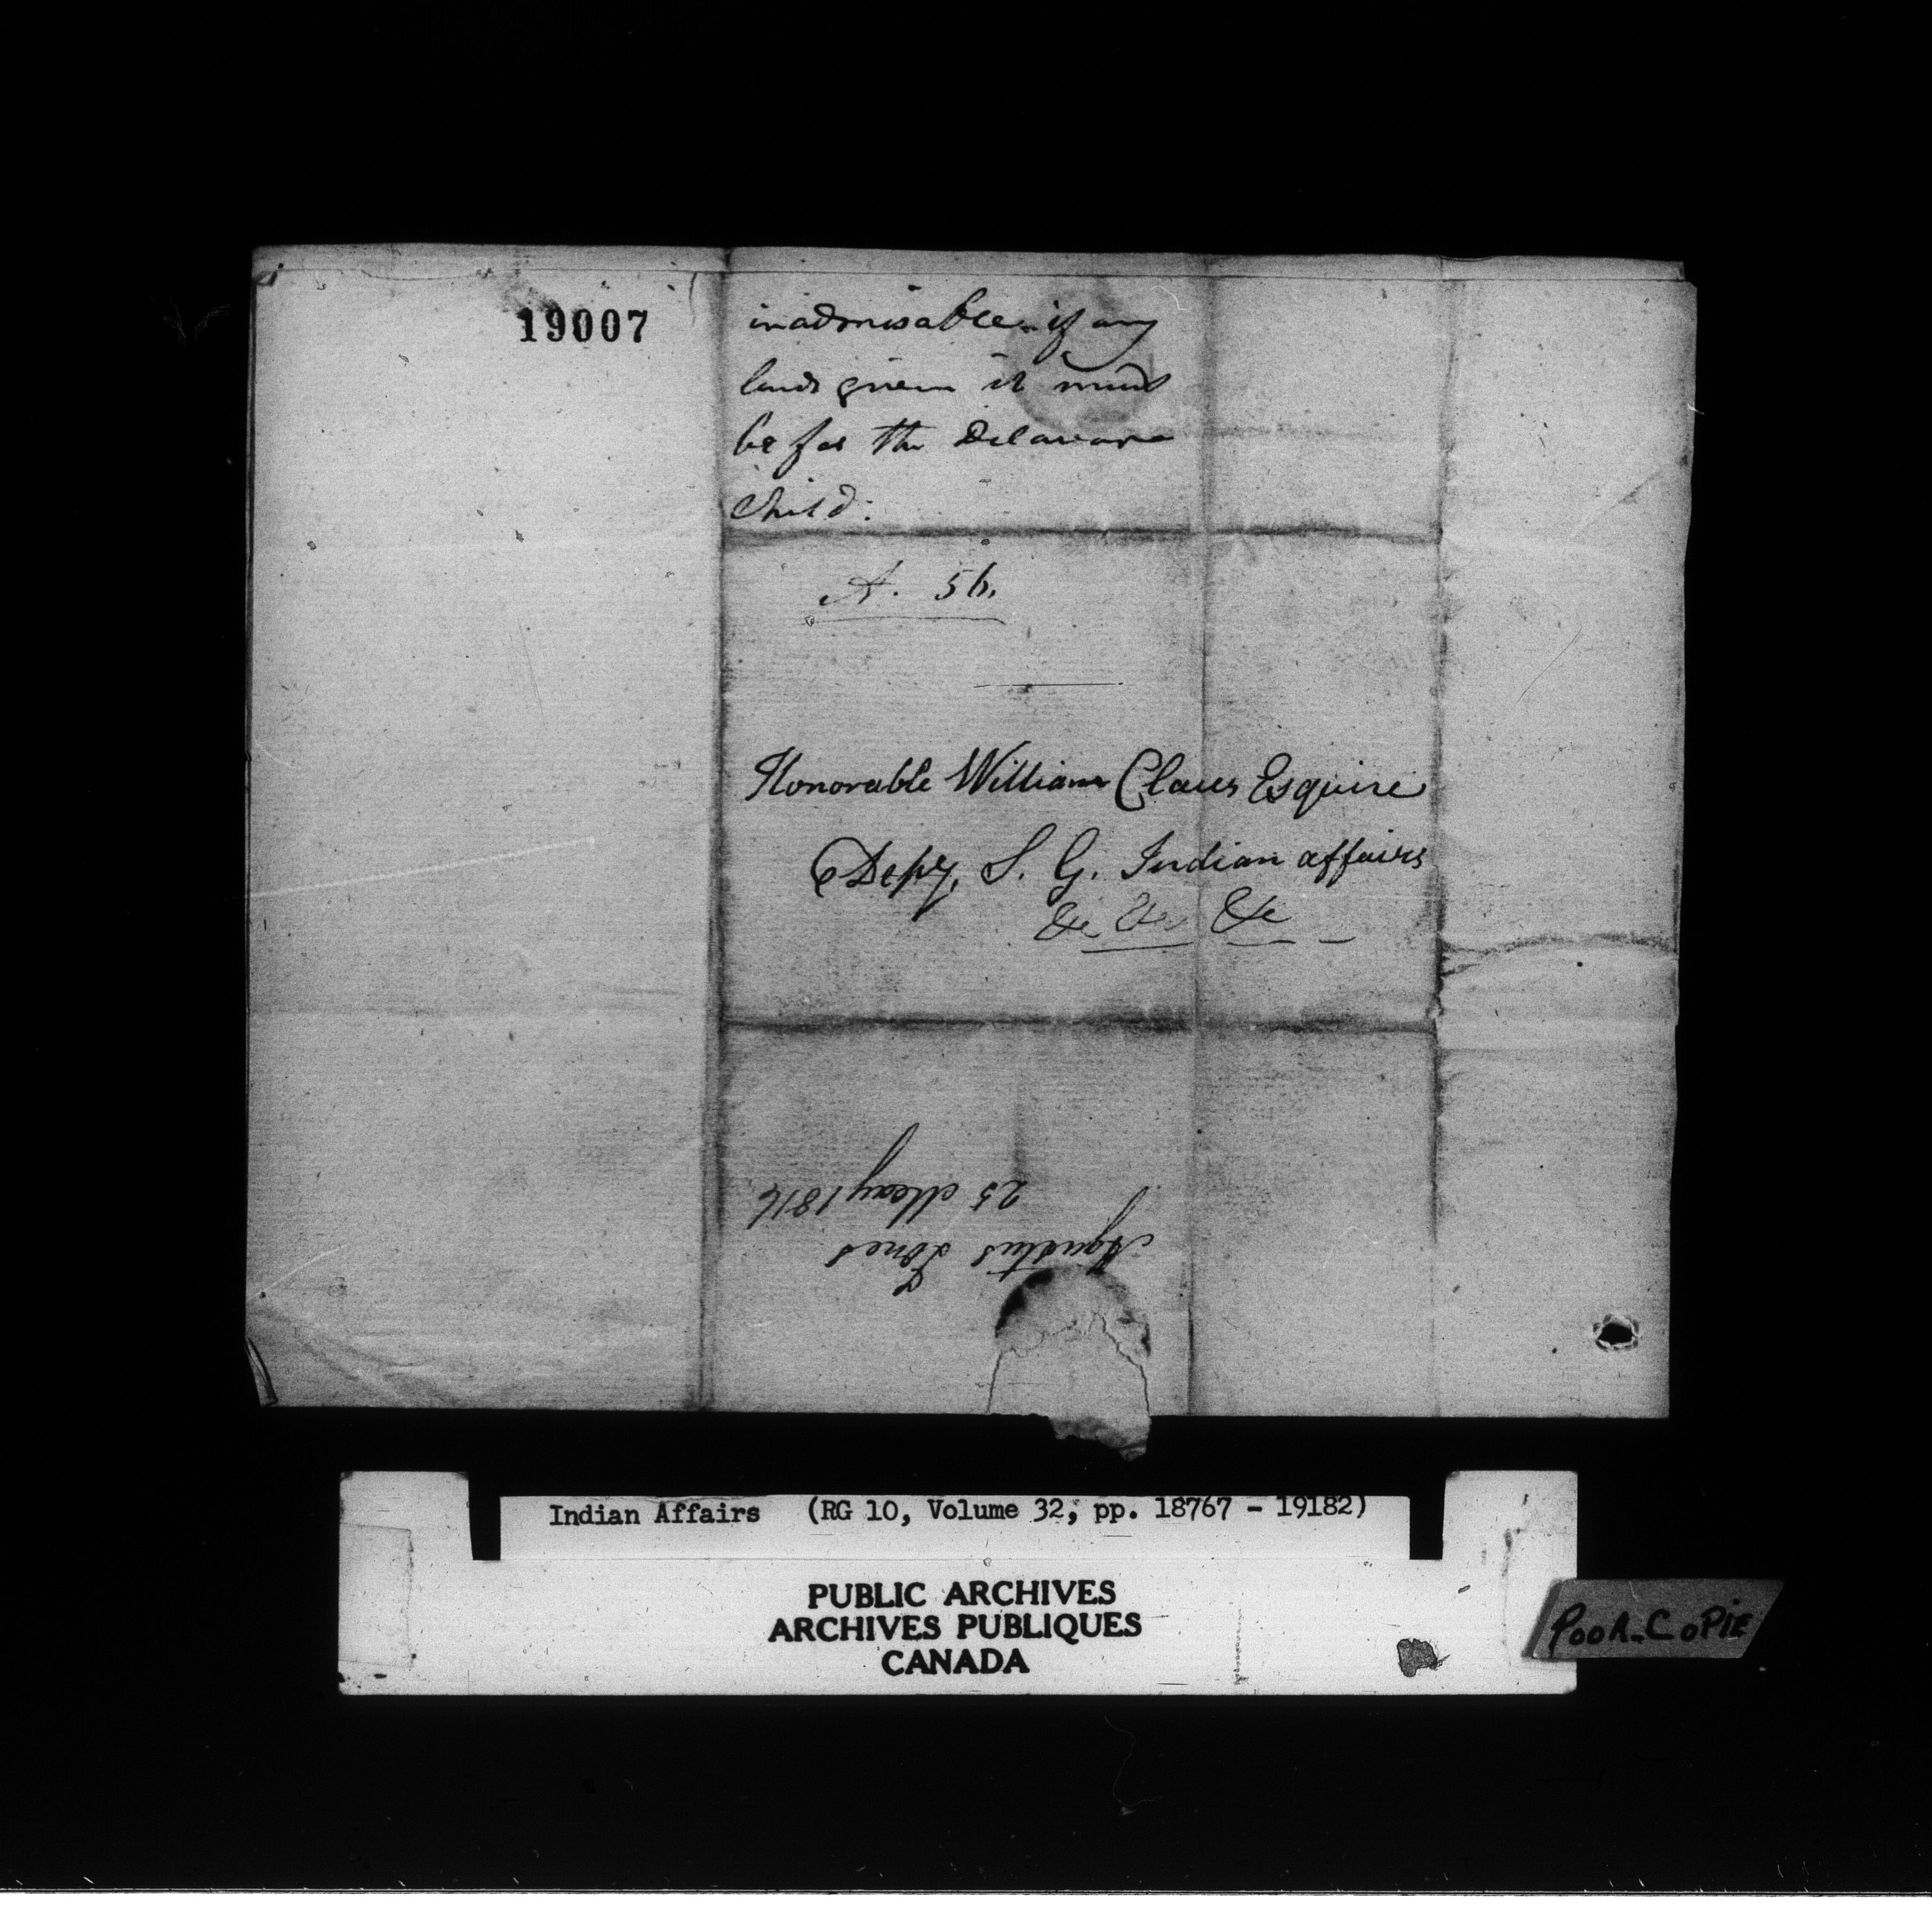 19007
inadmisable. if any
lands given it must
be for the Delaware
Child:
A. 56.
Honorable William Claus Esquire
Depy, S. G. Indian affairs
&c &c &c
Augustus Jones
25 May 1816
Indian Affairs (RG 10, Volume 32, pp. 18767 - 19182)
PUBLIC ARCHIVES
ARCHIVES PUBLIQUES
CANADA
POOR-COPIE